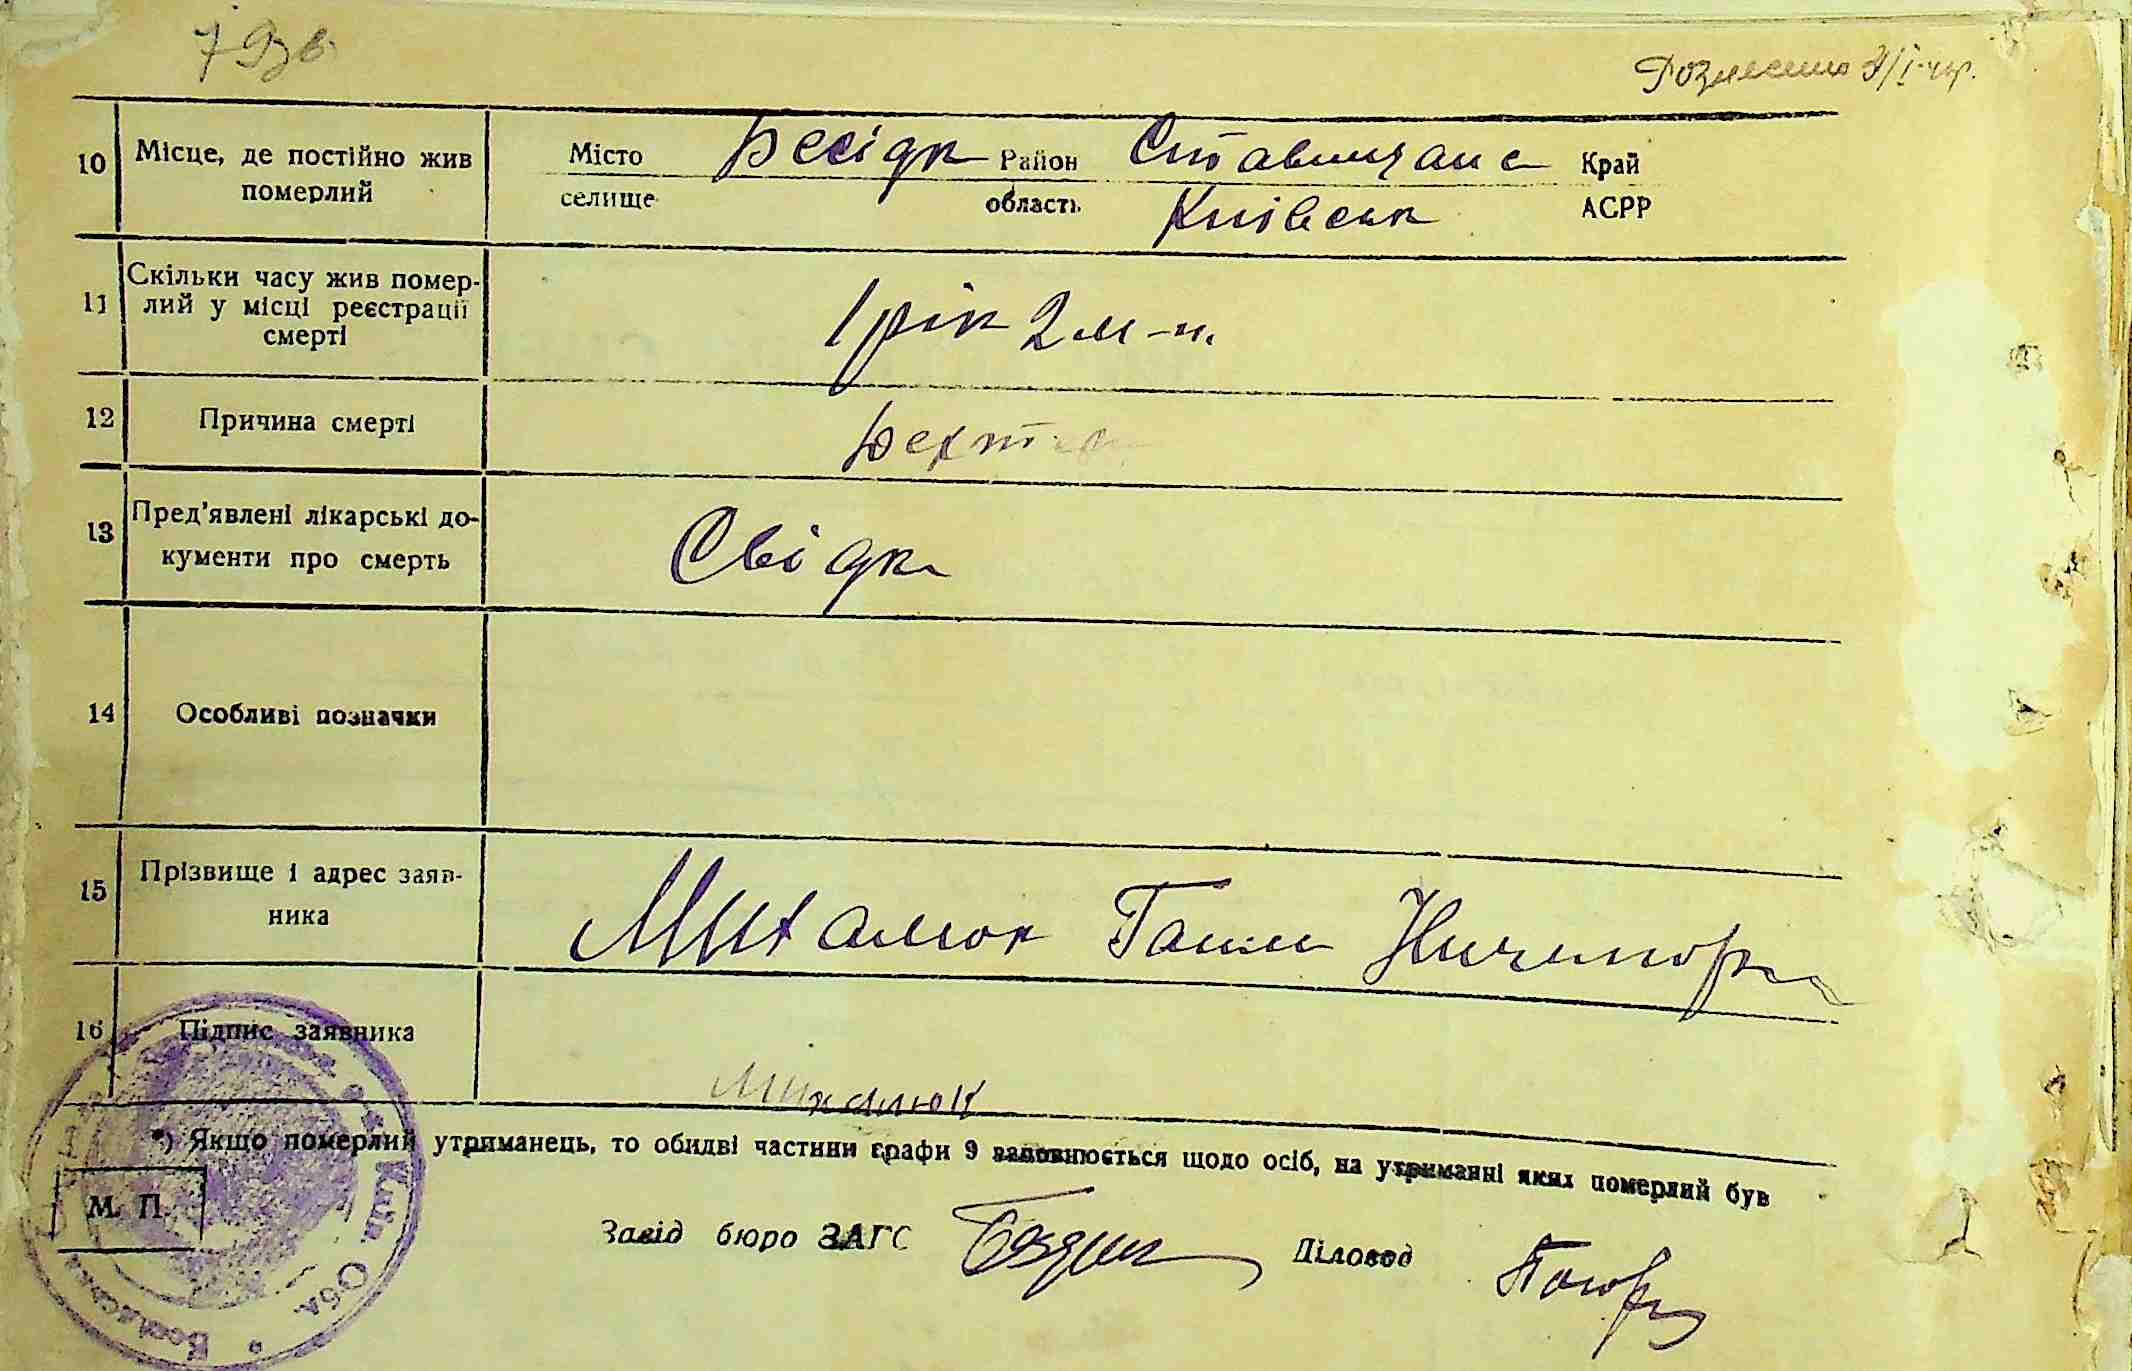 79зв.
Рознесено
10 Місце, де постійно жив померлий Місто селище Бесідк Район Ставищанс Край
область Київськ АСРР
11 Скільки часу жив помер-
лий у місці реєстрації
смерті
1 рік 2 м-ц.
12 Причина смерті
13 Пред'явлені лікарські до-
кументи про смерть
Свідк
14 Особливі позначки
15 Прізвище і адрес заяв-
ника
Михалюк Ганни Ничипор
16 Підпис заявника
Михалюк
*) Якщо померлий утриманець, то обидві частини графи 9 заповнюється щодо осіб, на утриманні яких померлий був
М. П.
Завід бюро ЗАГС Діловод
Київ. Обл.